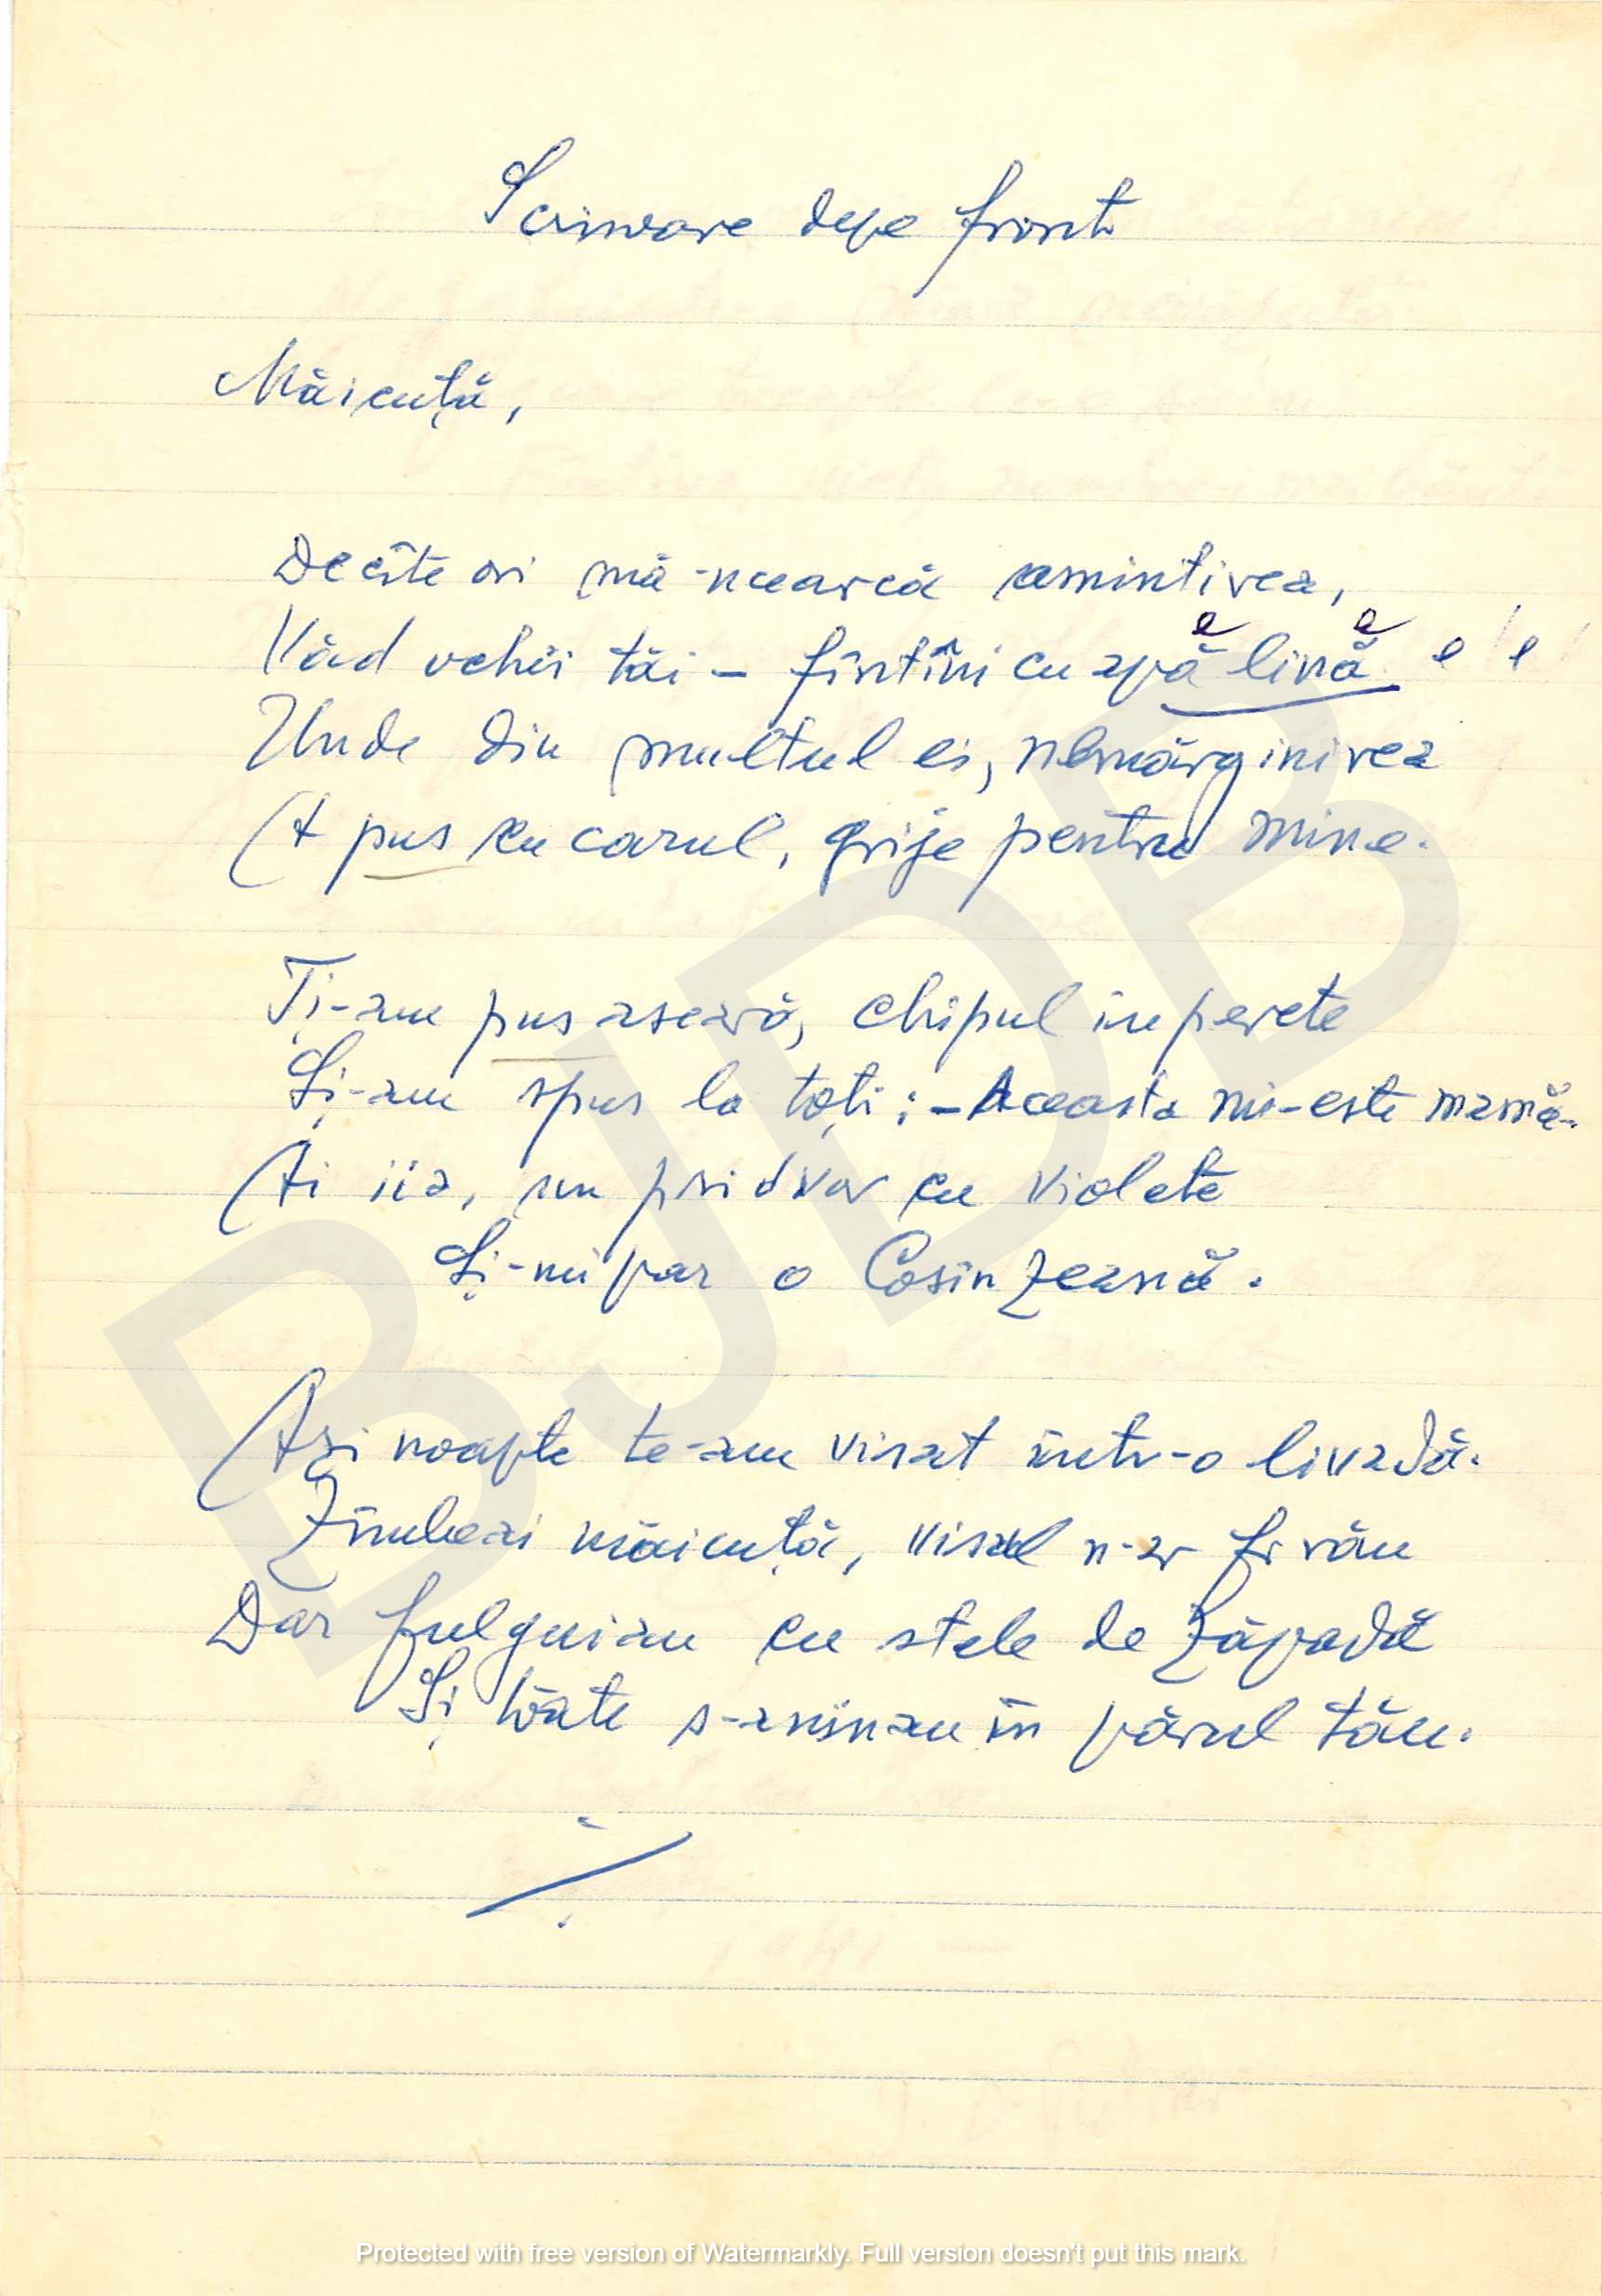 Scrisoare depe front
Măicuță,
Decîte ori mă-ncearcă amintirea,
Văd ochii tăi – fîntîni cu apă lină e e
e e
Unde din multul ei, nemărginirea
A pus cu carul, grije pentru mine.
Ți-am pus aseară, chipul în perete
Și-am spus la toți: – Aceasta mi-este mamă.
Ai iia, un pridvor cu violete
Și-mi par o Cosînzeană.
Azi noapte te-am visat într-o livadă.
Zîmbeai măicuță, visul n-ar fi rău
Dar fulguiau cu stele de zăpadă
Și toate s-aninau în părul tău.
BJDB
Protected with free version of Watermarkly. Full version doesn't put this mark.